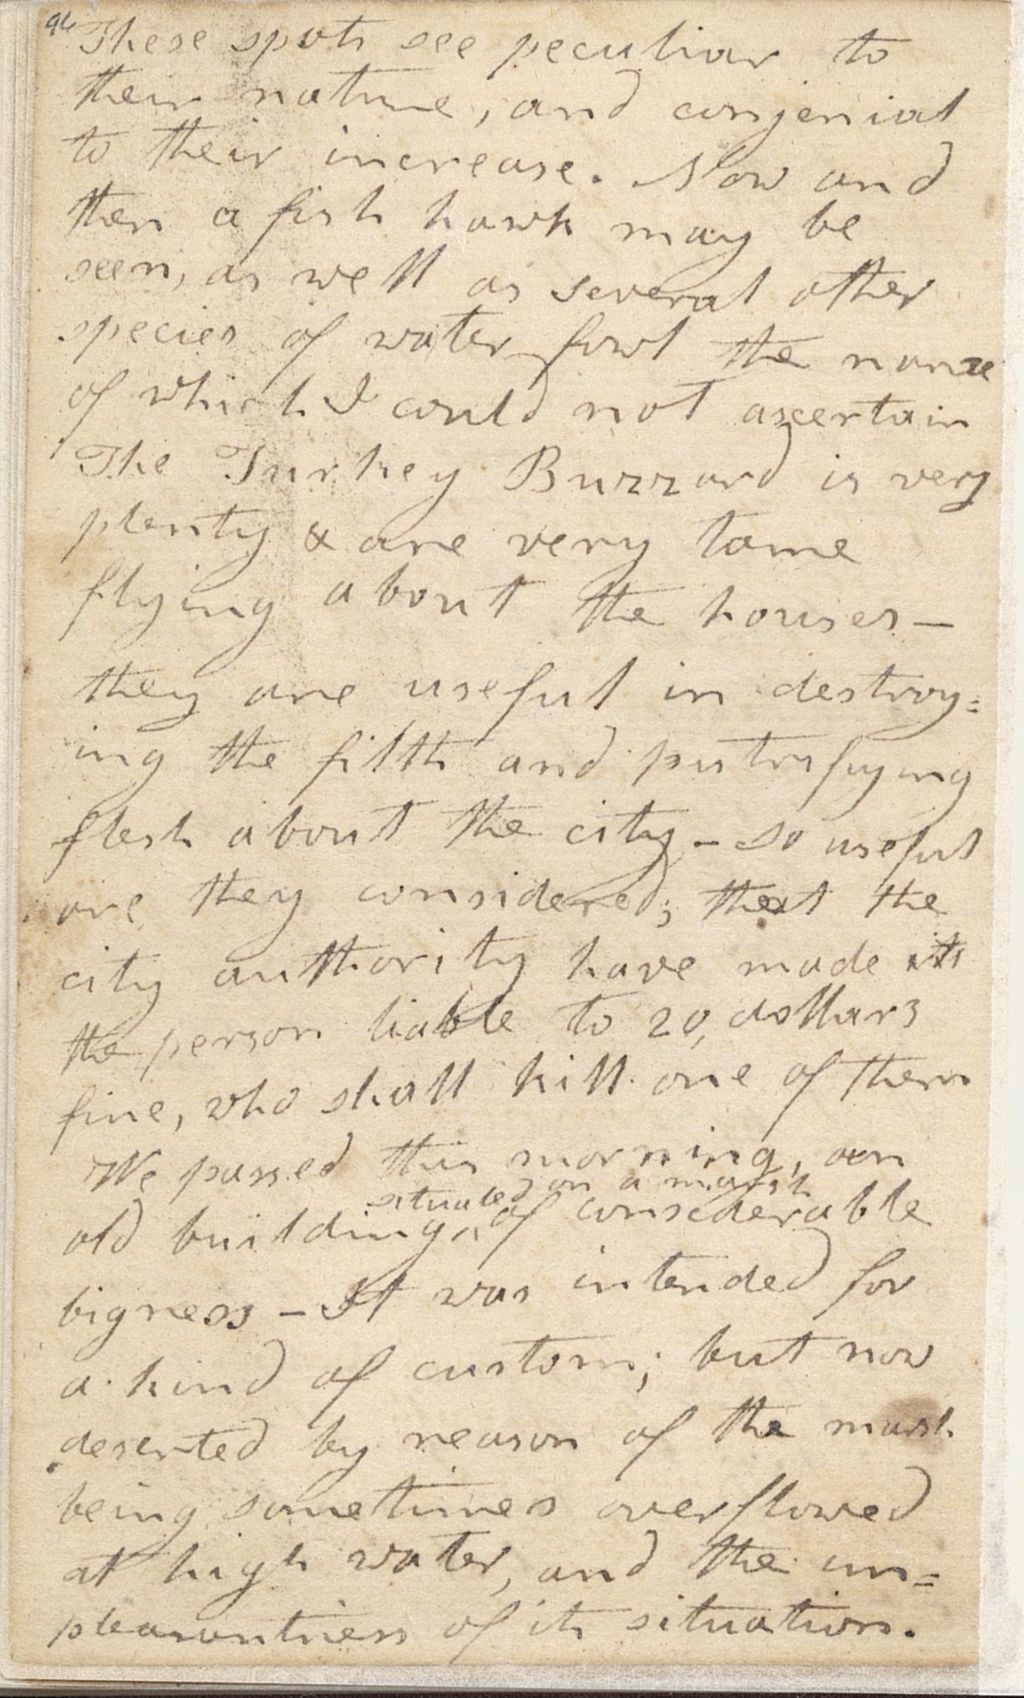 94
These spots see peculiar to
their nature, and conjenial
to their increase. Now and
then a fish hawk may be
seen, as well as several other
species of water fowl the name
of which I could not ascertain
The Turkey Buzzard is very
plenty & are very tame
flying about the houses—
they are useful in destroy=
ing the filth and putrifying
flesh about the city— so useful
are they considered; that the
city authority have made its
the person liable to 20, dollars
fine, who shall kill one of them
We passed this morning, an
situated on a marsh
old building, of considerable
bigness — It was intended for
a kind of custom; but now
deserted by reason of the marsh
being sometimes overflowed
at high water, and the un=
pleasantness of its situation.